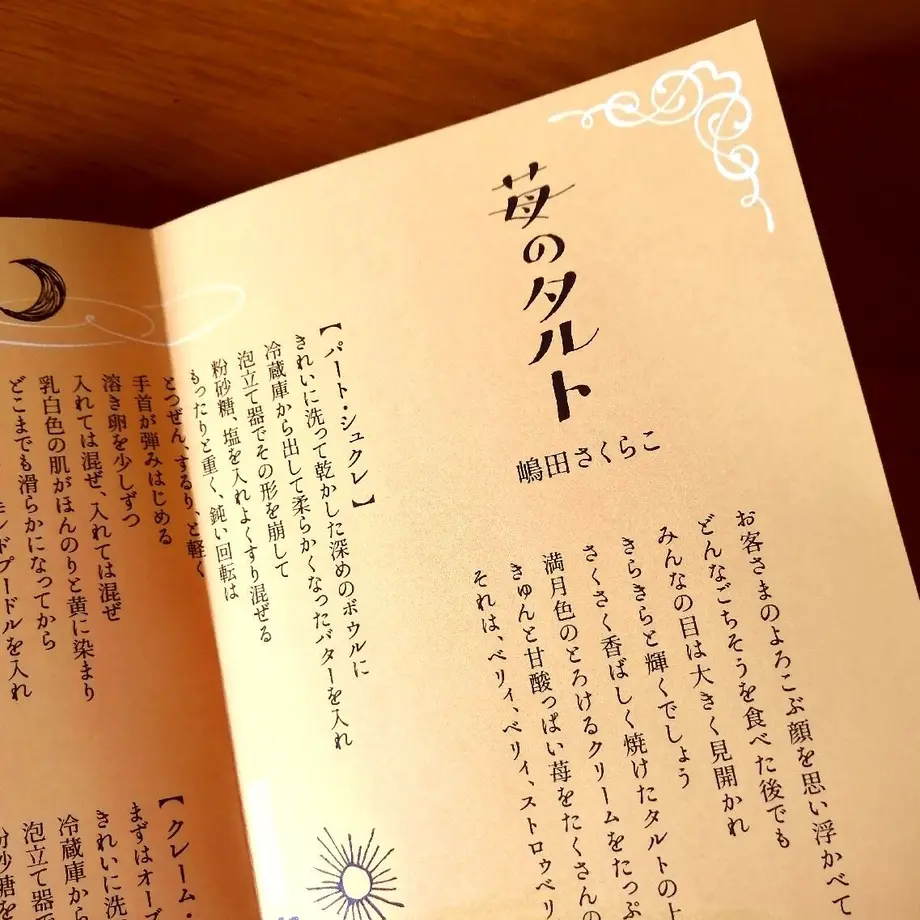 苺のタルト
嶋田さくらこ
お客さまのよろこぶ顔を思い浮かべて
どんなごちそうを食べた後でも
みんなの目は大きく見開かれ
きらきらと輝くでしょう
さくさく香ばしく焼けたタルトの上
満月色のとろけるクリームをたっぷ
きゅんと甘酸っぱい苺をたくさんの
それは、ベリィ、ベリィ、ストロゥベリ
【パート・シュクレ】
きれいに洗って乾かした深めのボウルに
冷蔵庫から出して柔らかくなったバターを入れ
泡立て器でその形を崩して
粉砂糖、塩を入れよくすり混ぜる
もったりと重く、鈍い回転は
とつぜん、するり、と軽く
手首が弾みはじめる
溶き卵を少しずつ
入れては混ぜ、入れては混ぜ
乳白色の肌がほんのりと黄に染まり
どこまでも滑らかになってから
モンドプードルを入れ
【クレーム・
まずはオーブ
きれいに洗
冷蔵庫から
泡立て器で
粉砂糖を